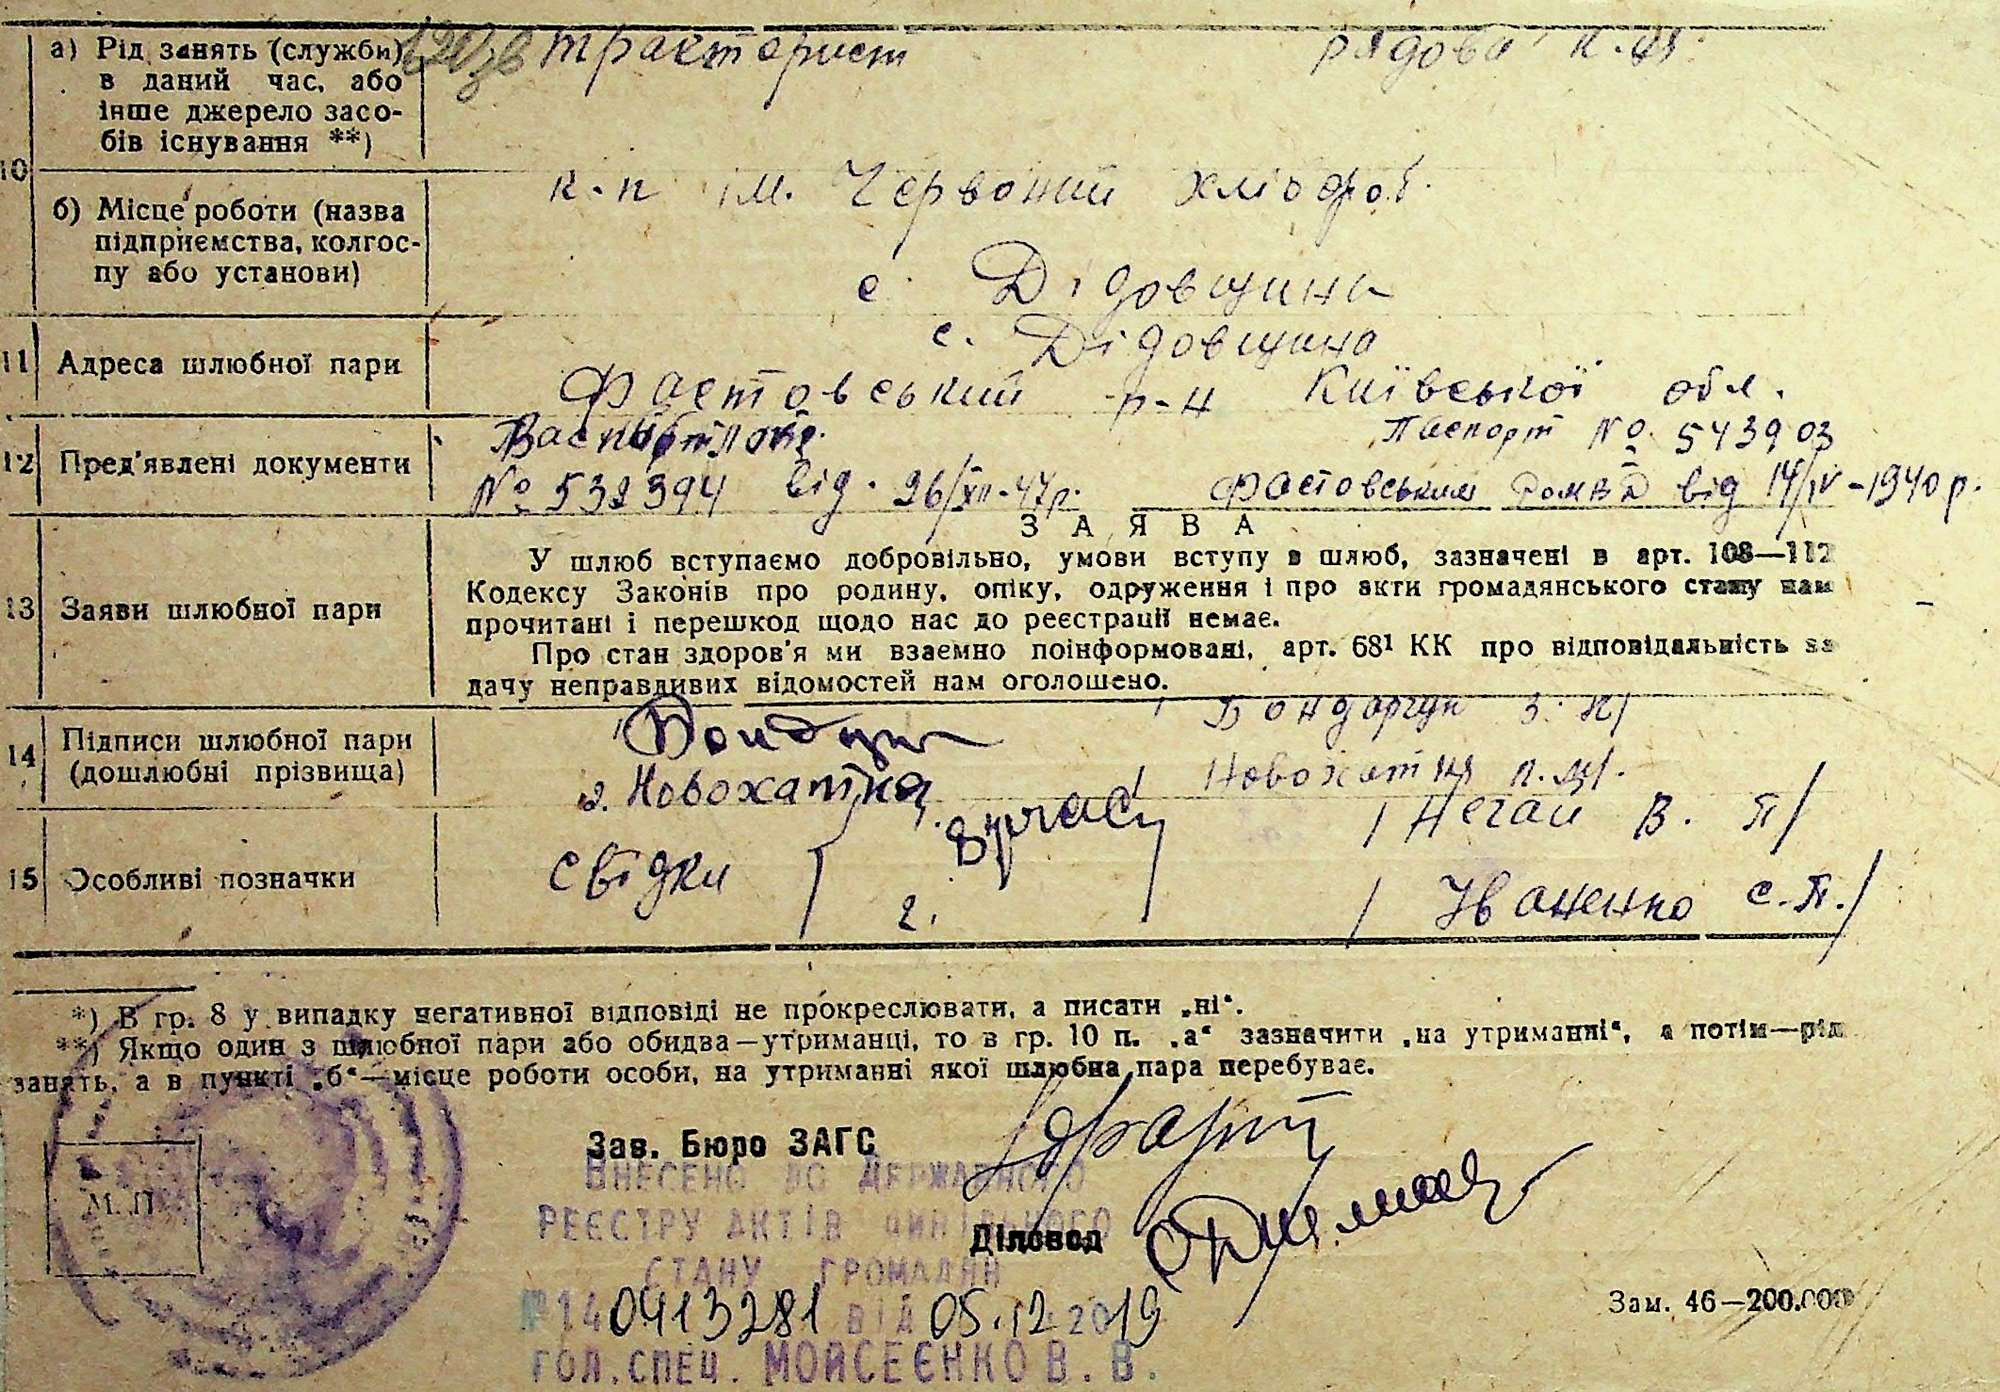 10
а) Рід занять (служби) тракторист рядова к-п.
в даний час, або
інше джерело засо-
бів існування **)
б) Місце роботи (назва к-п ім. Червоний хлібороб.
підприємства, колгос-
пу або установи) с. Дідовщина
11 Адреса шлюбної пари с. Дідовщина
Фастовський р-н Київської обл.
12 Пред'явлені документи Паспорт № 543903
№ 532394 від. 26/XII-47р. Фастовським від 14/IV-1940р.
З А Я В А
13 Заяви шлюбної пари
У шлюб вступаємо добровільно, умови вступу в шлюб, зазначені в арт. 108—112
Кодексу Законів про родину, опіку, одруження і про акти громадянського стану нам
прочитані і перешкод щодо нас до реєстрації немає.
Про стан здоров'я ми взаємно поінформовані, арт. 68¹ КК про відповідальність за
дачу неправдивих відомостей нам оголошено.
14 Підписи шлюбної пари Бондарчук
(дошлюбні прізвища) 2. Новохатка
15 Особливі позначки свідки / Негай В. П/
2. / Іваненко С.П./
*) В гр. 8 у випадку негативної відповіді не прокреслювати, а писати „ні“.
**) Якщо один з шлюбної пари або обидва—утриманці, то в гр. 10 п. „а“ зазначити „на утриманні“, а потім—рід
занять, а в пункті „б“—місце роботи особи, на утриманні якої шлюбна пара перебуває.
М. П.
Зав. Бюро ЗАГС
ВНЕСЕНО ДО ДЕРЖАВНОГО
РЕЄСТРУ АКТІВ ЦИВІЛЬНОГО
Діловод
СТАНУ ГРОМАДЯН
№ 140413281 ВІД 05.12 2019
ГОЛ.СПЕЦ. МОЙСЕЄНКО В. В.
Зам. 46—200.000